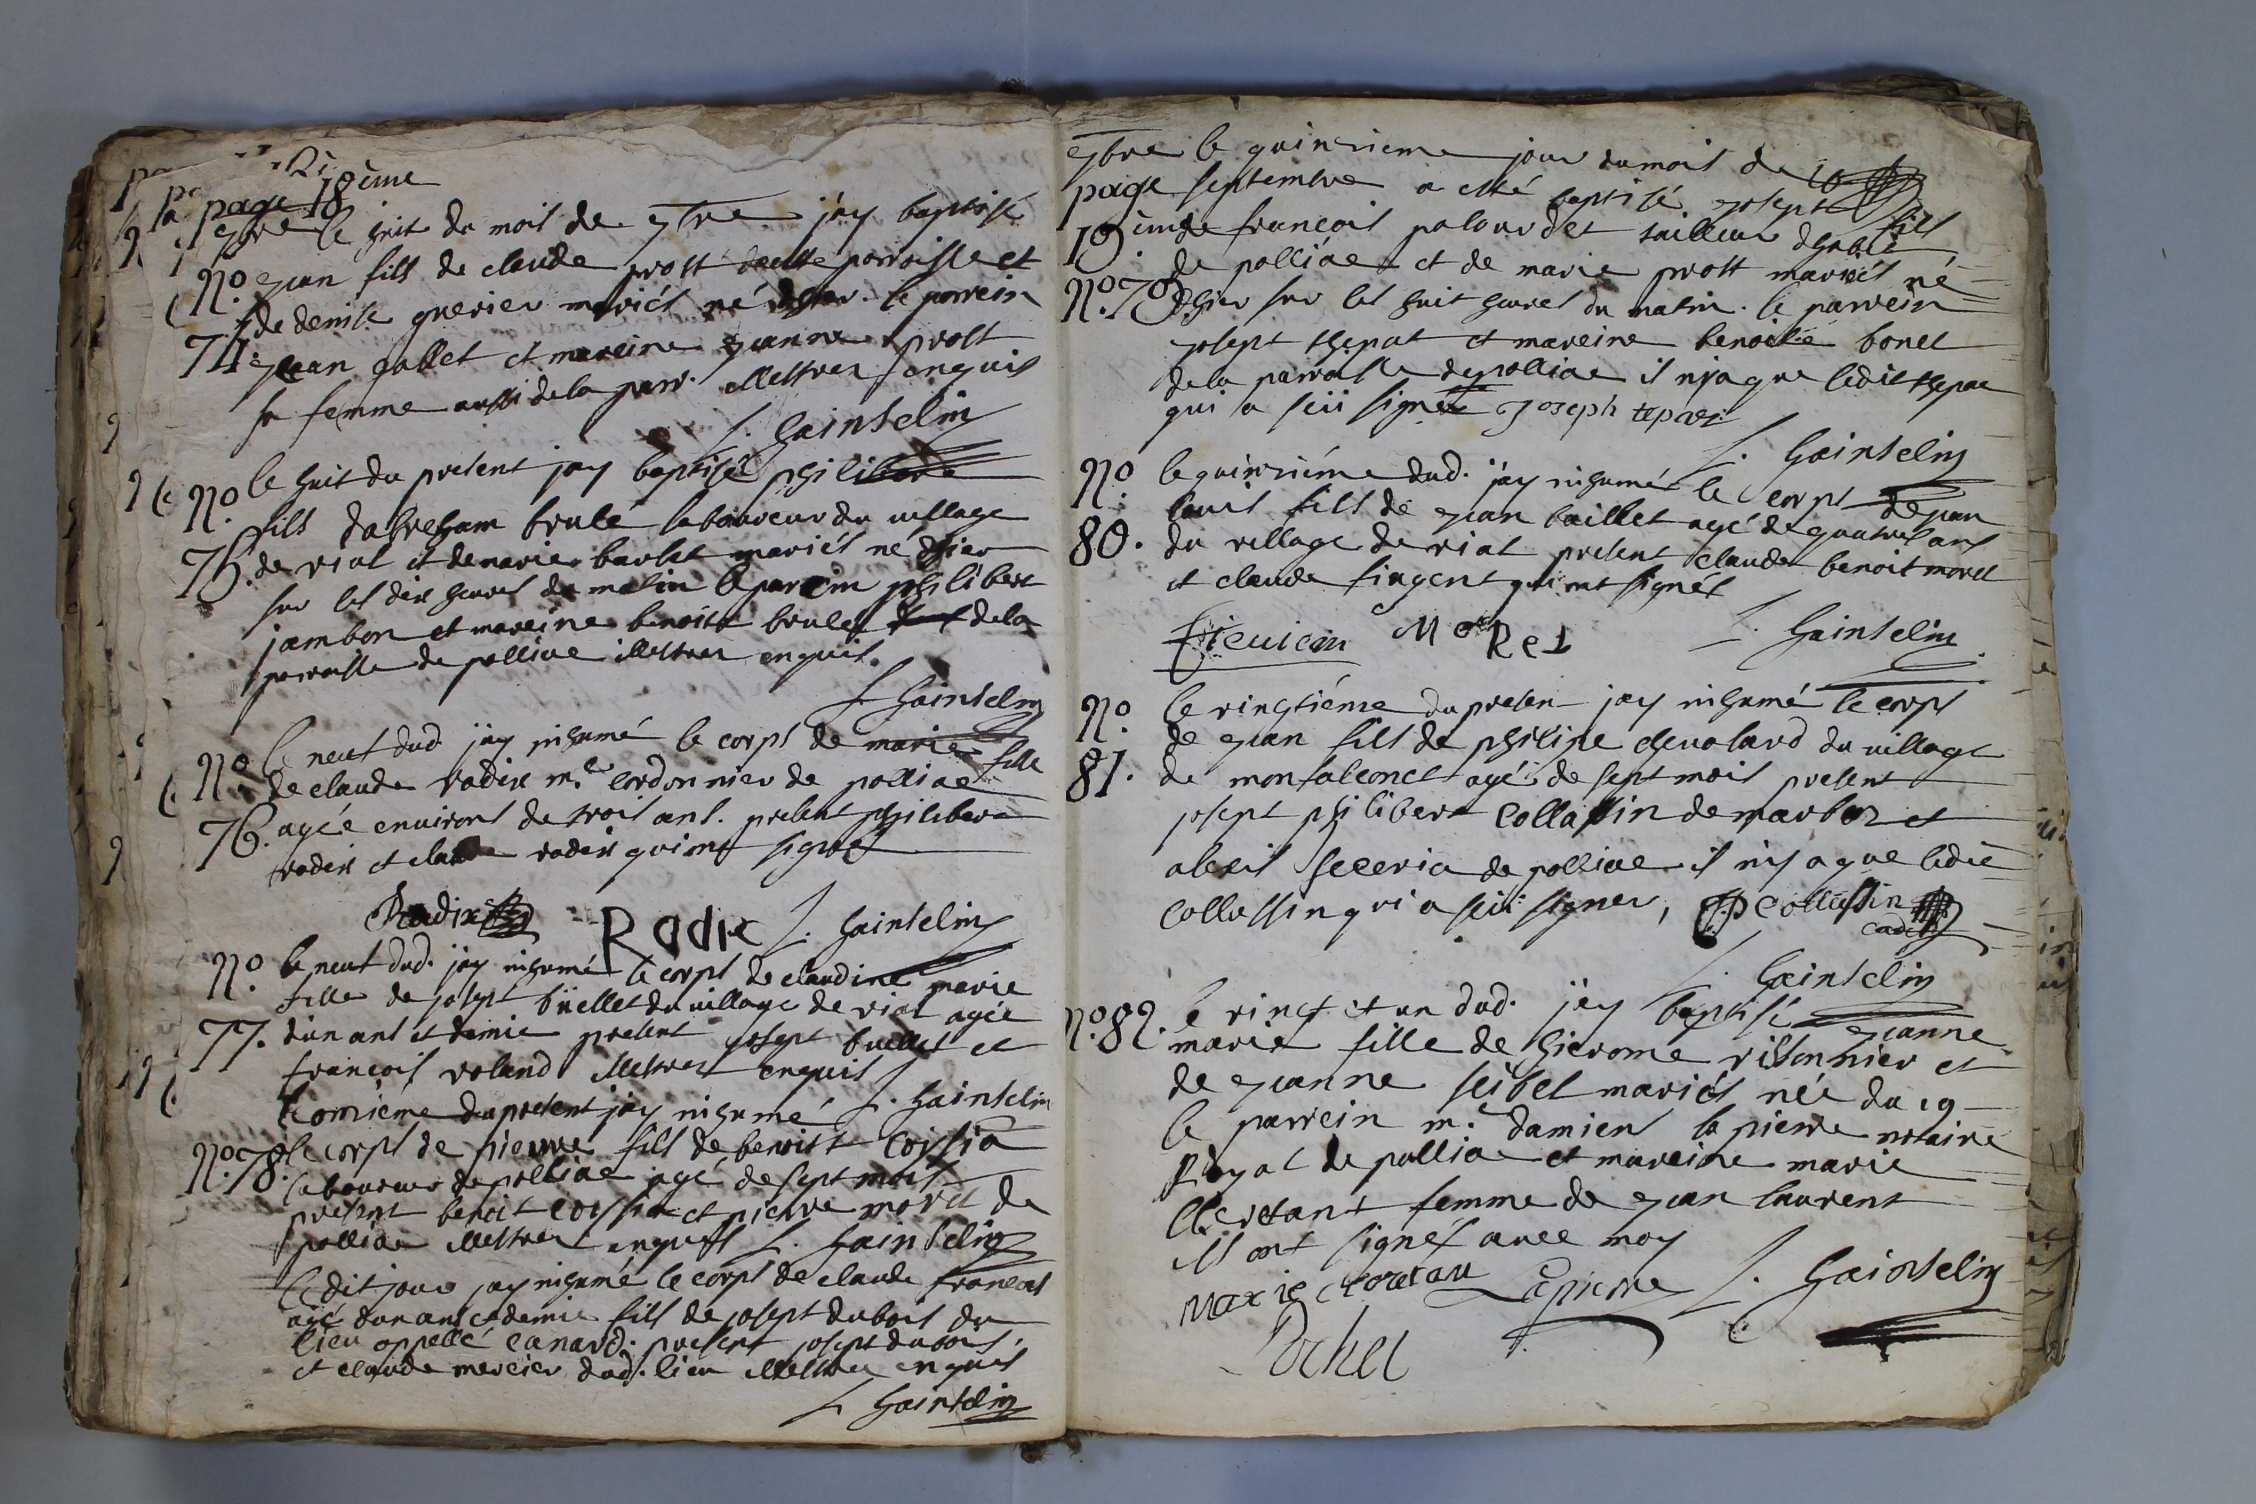 page 18ème
7bre le huit du mois de 7bre j'ay baptisé
No jean fils de claude prost de cette parroisse et
de denise guerier mariés né d'hier le parrein
74: jean gallet et mareine jeanne prost
sa femme aussi de la parr. illestres enquis
L. Gainselin
No le huit du present jay baptisé philibert
fils dabreham brulé laboureur du village
75. de riat et de marie barlet mariés né d'hier
sur les dix heures du matin le parrein philibert
jambon et mareine benoite brulé de la
parroisse de polliac illestres enquis.
L. Gainselin
No le neuf dud. jay inhumé le corps de marie fille
de claude radix me. cordonnier de polliac
76. agée environs de trois ans. present philibert
radix et claude radix qui ont signé
Radix Radix L. Gainselin
No. le neuf dud. jay inhumé le corps de claudine marie
fille de josept büellet du village de riat agée
77. d'un ans et demie present josept buellet et
françois roland illestres enquis
L. Gainselin
le onzième du present jay inhumé
No. 78. le corps de pierre fils de benoist coissia
laboureur de polliac agé de sept mois
present benoit coissia et pierre morel de
polliac illestres enquis L. Gainselin
Le dit jour jay inhumé le corps de claude françois
agé d'un ans et demie fils de josept dubois du
lieu appellé canard. present josept dubois
et claude mercier dud. lieu illestres enquis
L. Gainselin
7bre le quinzieme jour du mois de
page septembre a esté baptisé josept fils
19ème de françois palourdet tailleur dhabit
de polliac et de marie prost mariés né
No. 79. dhier sur les huit heures du matin. le parrein
josept thepat et mareine benoite bonet
de la parroisse de polliac il n'y a que ledit thepat
qui a seü signer Joseph tepat
L. Gainselin
No le quinziéme dud. j'ay inhumé le corps de jean
louis fils de jean caillet agé de quatres ans
80. du village de riat present claude benoit morel
et claude firgent qui ont signés
MoRel L. Gainselin
No le vingtiéme du present jay inhumé le corps
de jean fils de philipe chevolard du village
81. de monfalconet agé de sept mois present
josept philibert Collassin de marboz et
alexis feceria de polliac il n'y a que ledit
collassin qui a seü signer, Collassin
cadet
L. Gainselin
No. 82. le vingt et un dud. j'ay baptisé jeanne
marie fille de hierome vissonnier et
de jeanne seibel mariés née du 19
le parrein me. damien la pierre notaire
Royal de polliac et mareine marie
cleretant femme de jean laurent
ils ont signés avec moy
Marie cloretan Lapierre L. Gainselin
Pochet